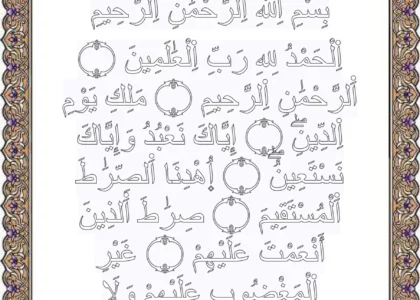 بِسْمِ اللَّهِ الرَّحْمَٰنِ الرَّحِيمِ
اَلْحَمْدُ لِلهِ رَبِّ الْعَالَمِينَ
اَلرَّحْمَانِ الرَّحِيمِ مَلِكِ يَوْمِ
الدِّينِ إِيَّاكَ نَعْبُدُ وَإِيَّاكَ
نَسْتَعِينُ اِهْدِنَا الصِّرَاطَ
الْمُسْتَقِيمَ صِرَاطَ الَّذِينَ
أَنْعَمْتَ عَلَيْهِمْ غَيْرِ
الْمَغْضُوبِ عَلَيْهِمْ وَلَا